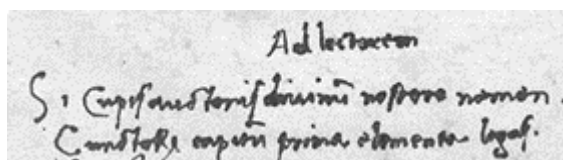 Ad lectorem
Si cupis auctoris divinū noscere nomen.
Cunctoꝝ capitū prima elementa legas.